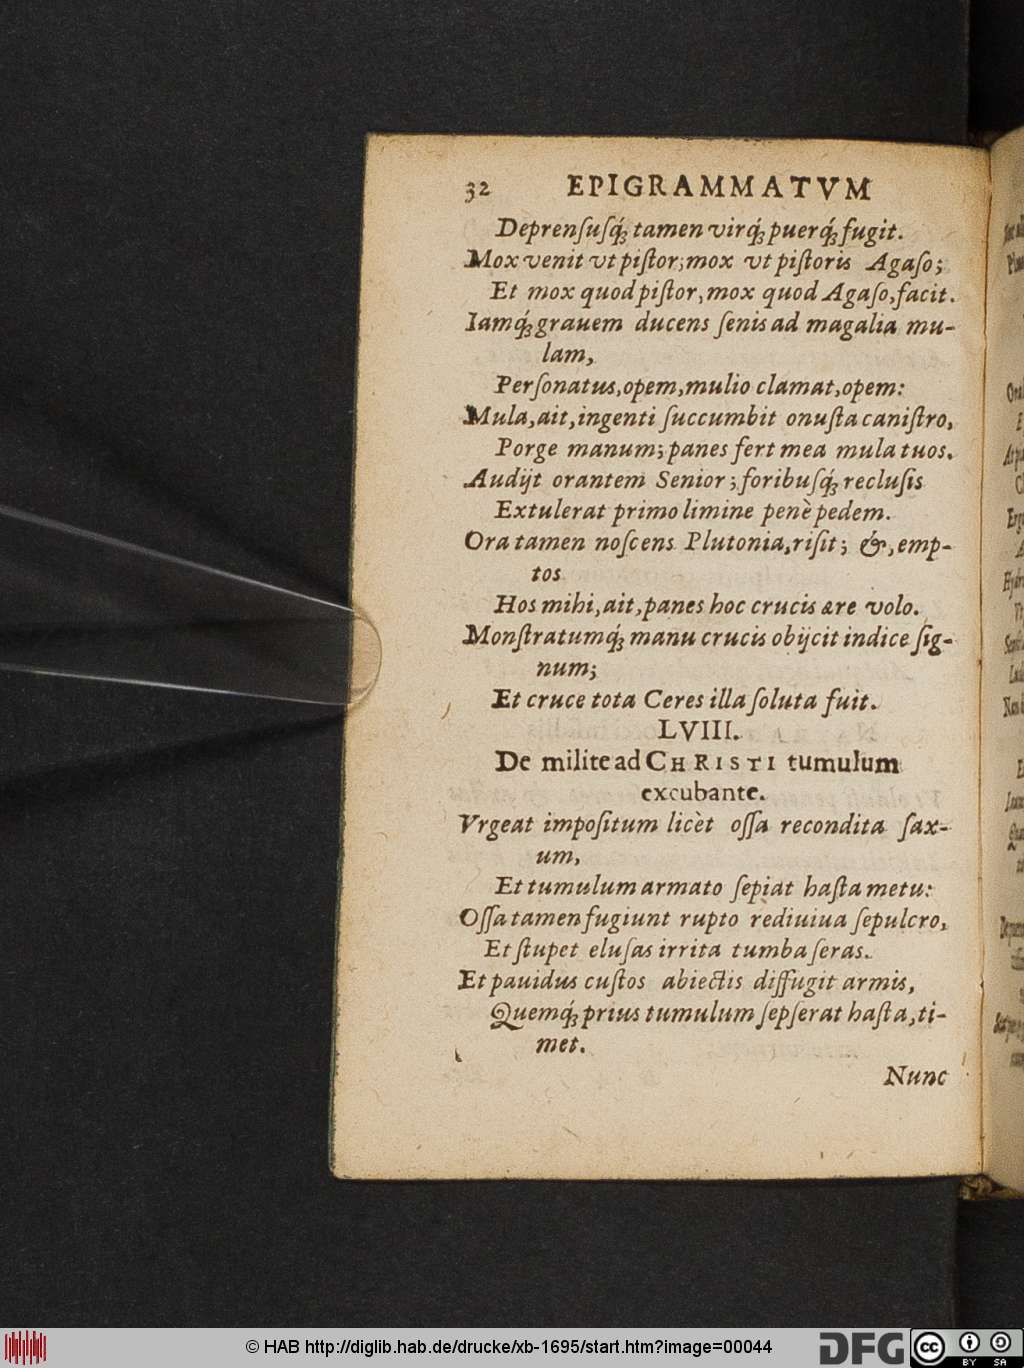 32 EPIGRAMMATVM
Deprenſuſq́ꝫ tamen virq́ꝫ puerq́ꝫ fugit.
Mox venit vt piſtor; mox vt piſtoris Agaſo;
Et mox quod piſtor, mox quod Agaſo, facit.
Iamq́ꝫ grauem ducens ſenis ad magalia mu-
lam,
Perſonatus, opem, mulio clamat, opem:
Mula, ait, ingenti ſuccumbit onuſta caniſtro,
Porge manum; panes fert mea mula tuos.
Audijt orantem Senior; foribuſq́ꝫ recluſis
Extulerat primo limine penè pedem.
Ora tamen noſcens Plutonia, riſit; &, emp-
tos
Hos mihi, ait, panes hoc crucis ære volo.
Monſtratumq́ꝫ manu crucis obijcit indice ſig-
num;
Et cruce tota Ceres illa ſoluta fuit.
LVIII.
De milite ad CHRISTI tumulum
excubante.
Vrgeat impoſitum licèt oſſa recondita ſax-
um,
Et tumulum armato ſepiat haſta metu:
Oſſa tamen fugiunt rupto rediuiua ſepulcro,
Et ſtupet eluſas irrita tumba ſeras.
Et pauidus cuſtos abiectis diffugit armis,
Quemq́ꝫ prius tumulum ſepſerat haſta, ti-
met.
Nunc
© HAB http://diglib.hab.de/drucke/xb-1695/start.htm?image=00044
DFG
cc BY SA